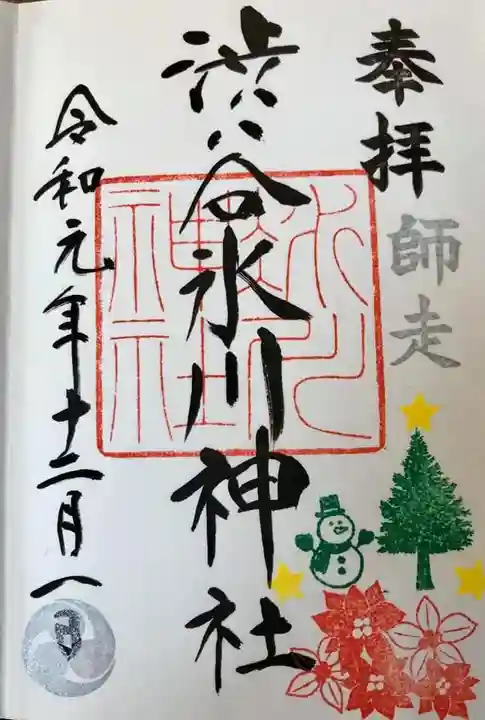 奉拝
師走
渋谷氷川神社
氷川神社
令和元年十二月一日